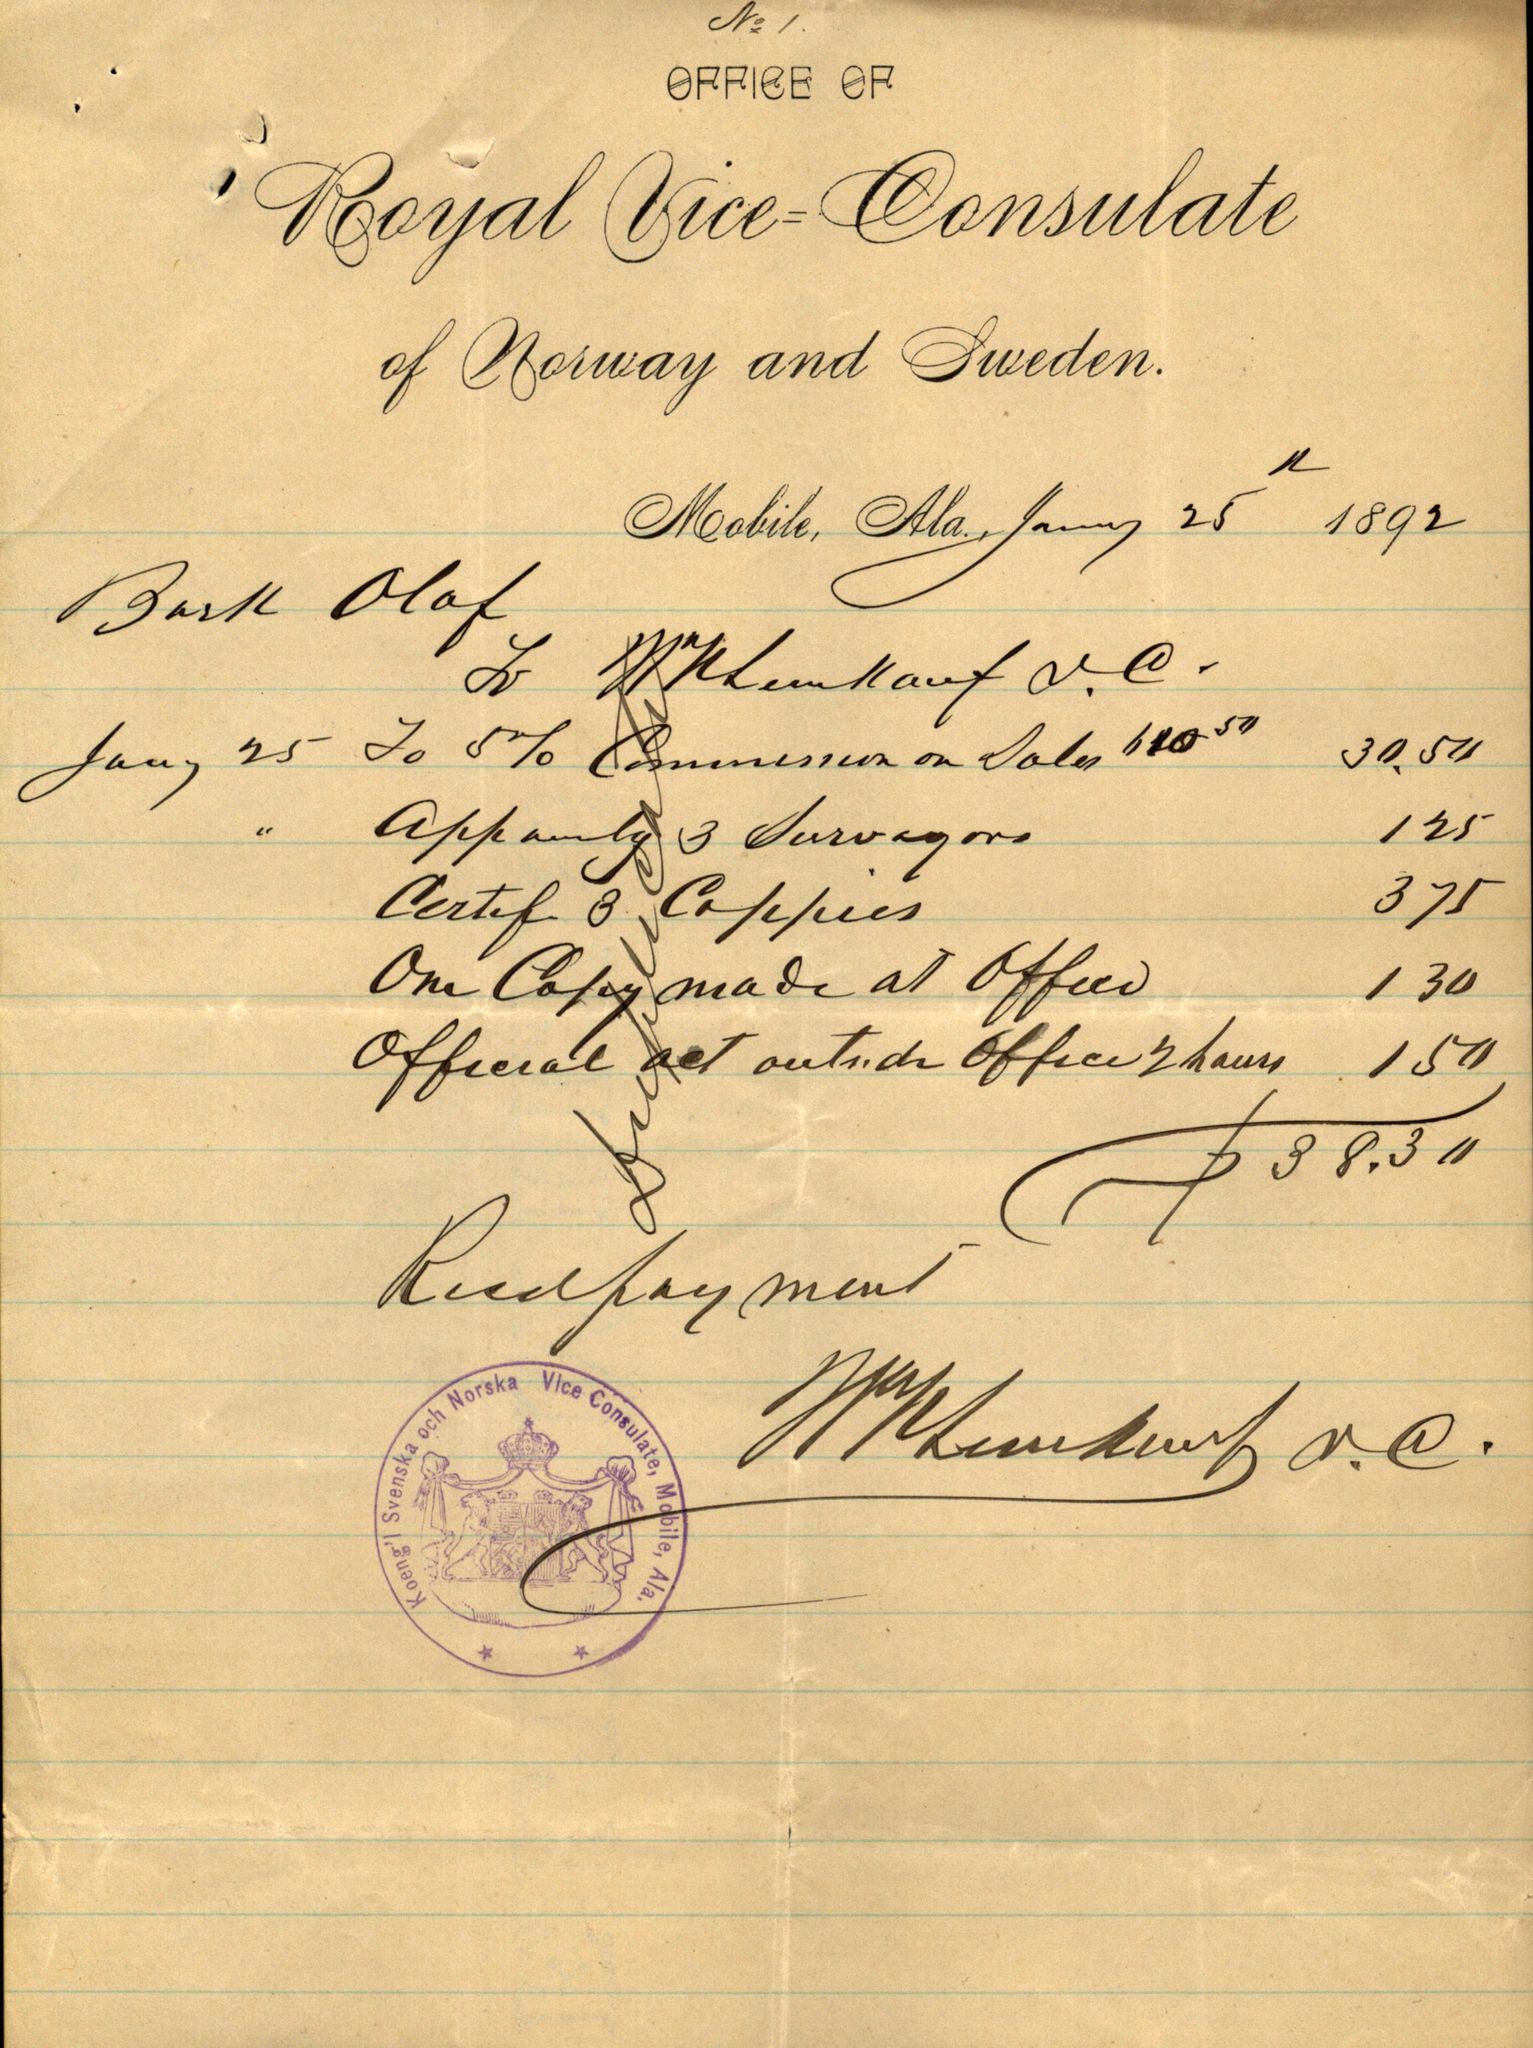 No 1.
OFFICE OF
Royal Vice=Consulate
of Norway and Sweden.
Mobile, Ala., Jany 25th 1892
Bark Olaf
To Wm H Leinkauf V.C.
Jany 25 To 5% Commission on Sales 610 50 30.50
" Appointg 3 Surveyors 1 25
Certif 3 Coppies 3 75
One Copy made at Office 1 30
Official act outside Office 2 hours 1 50
$ 38.30
Duplicate
Recd payment
Wm H Leinkauf V.C.
Koeng'l Svenska och Norska Vice Consulate, Mobile, Ala.